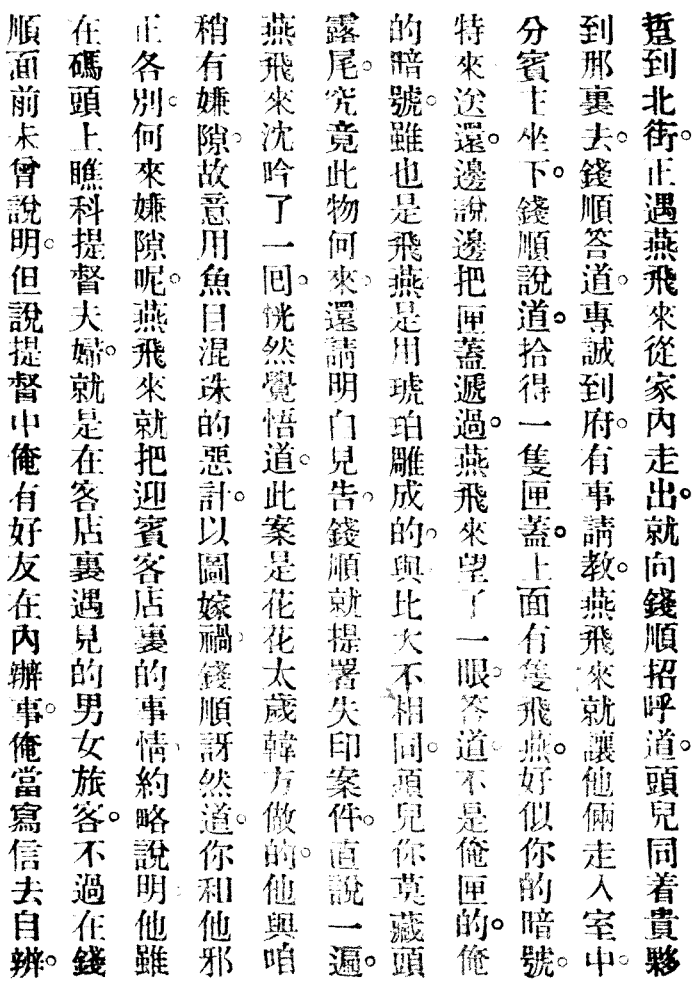 踅到北街。正遇燕飛來從家內走出。就向錢順招呼道。頭兒同着貴夥
到那裏去。錢順答道。專誠到府。有事請教。燕飛來就讓他倆走入室中。
分賓主坐下。錢順說道。拾得一隻匣。蓋上面有隻飛燕。好似你的暗號。
特來送還。邊說邊把匣蓋遞過。燕飛來望了一眼。答道。不是俺匣的。俺
的暗號。雖也是飛燕。是用琥珀雕成的。與此大不相同。頭兒你莫藏頭
露尾。究竟此物何來。還請明白見告。錢順就提署失印案件。直說一遍。
燕飛來沈吟了一囘。恍然覺悟道。此案是花花太歲韓方做的。他與咱
稍有嫌隙。故意用魚目混珠的惡計。以圖嫁禍。錢順訝然道。你和他邪
正各別。何來嫌隙呢。燕飛來就把迎賓客店裏的事情。約略說明。他雖
在碼頭上瞧科提督夫婦。就是在客店裏遇見的男女旅客。不過在錢
順面前未曾說明。但說提督中俺有好友在內辦事。俺當寫信去自辨。